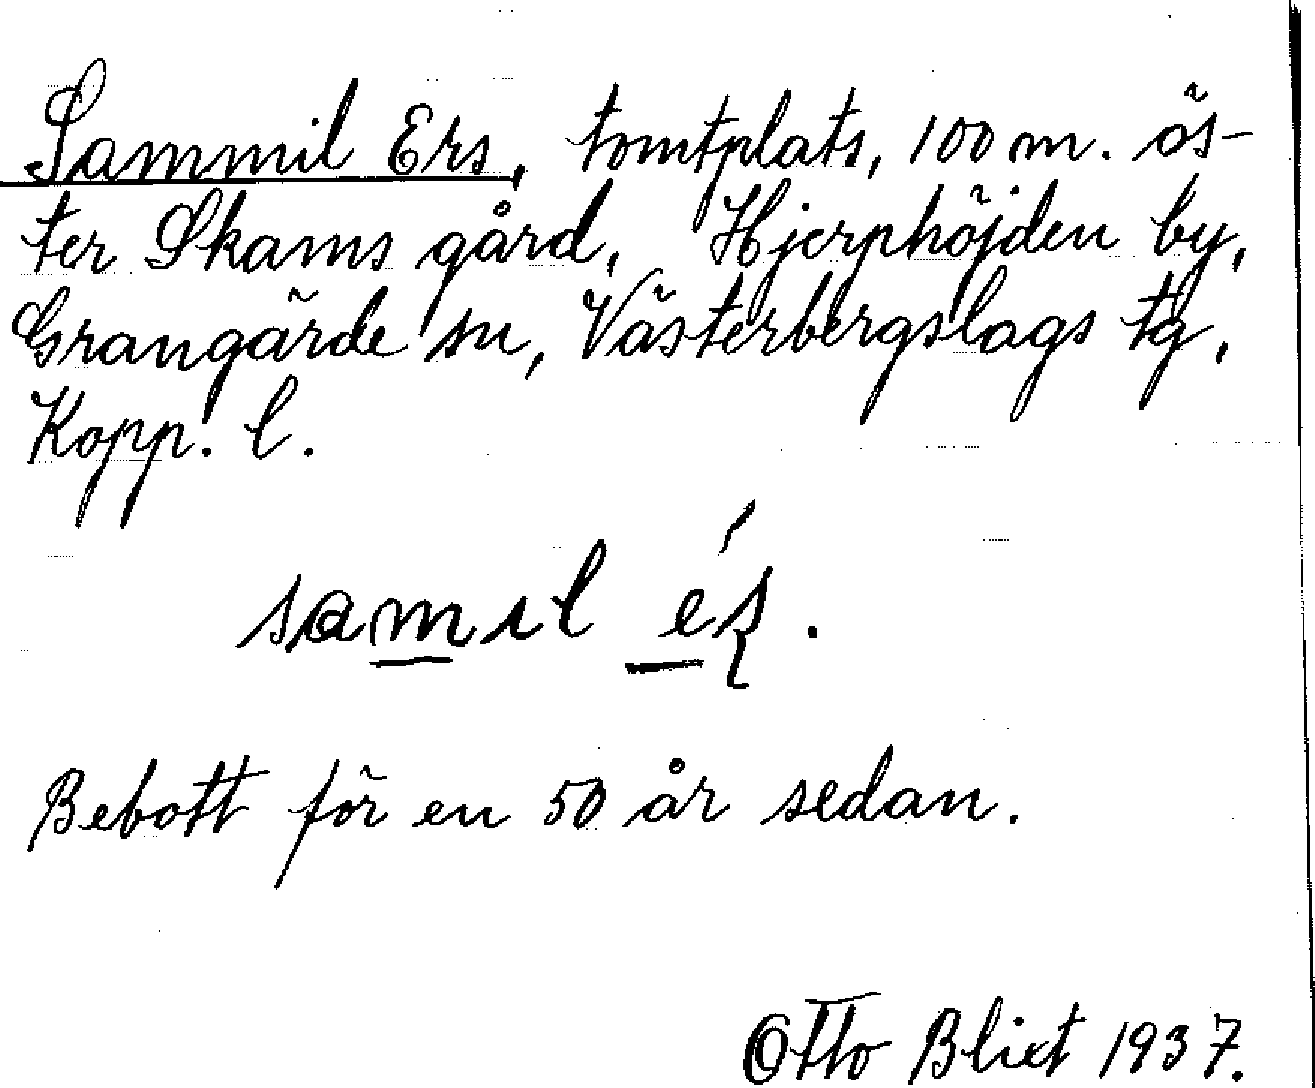 Sammil Ers, tomtplats, 100 m. ös-
ter Skams gård, Hjerphöjden by,
Grangärde sn, Västerbergslags tg,
Kopp. l.
samıl és̨.
Bebott för en 50 år sedan.
Otto Blixt 1937.